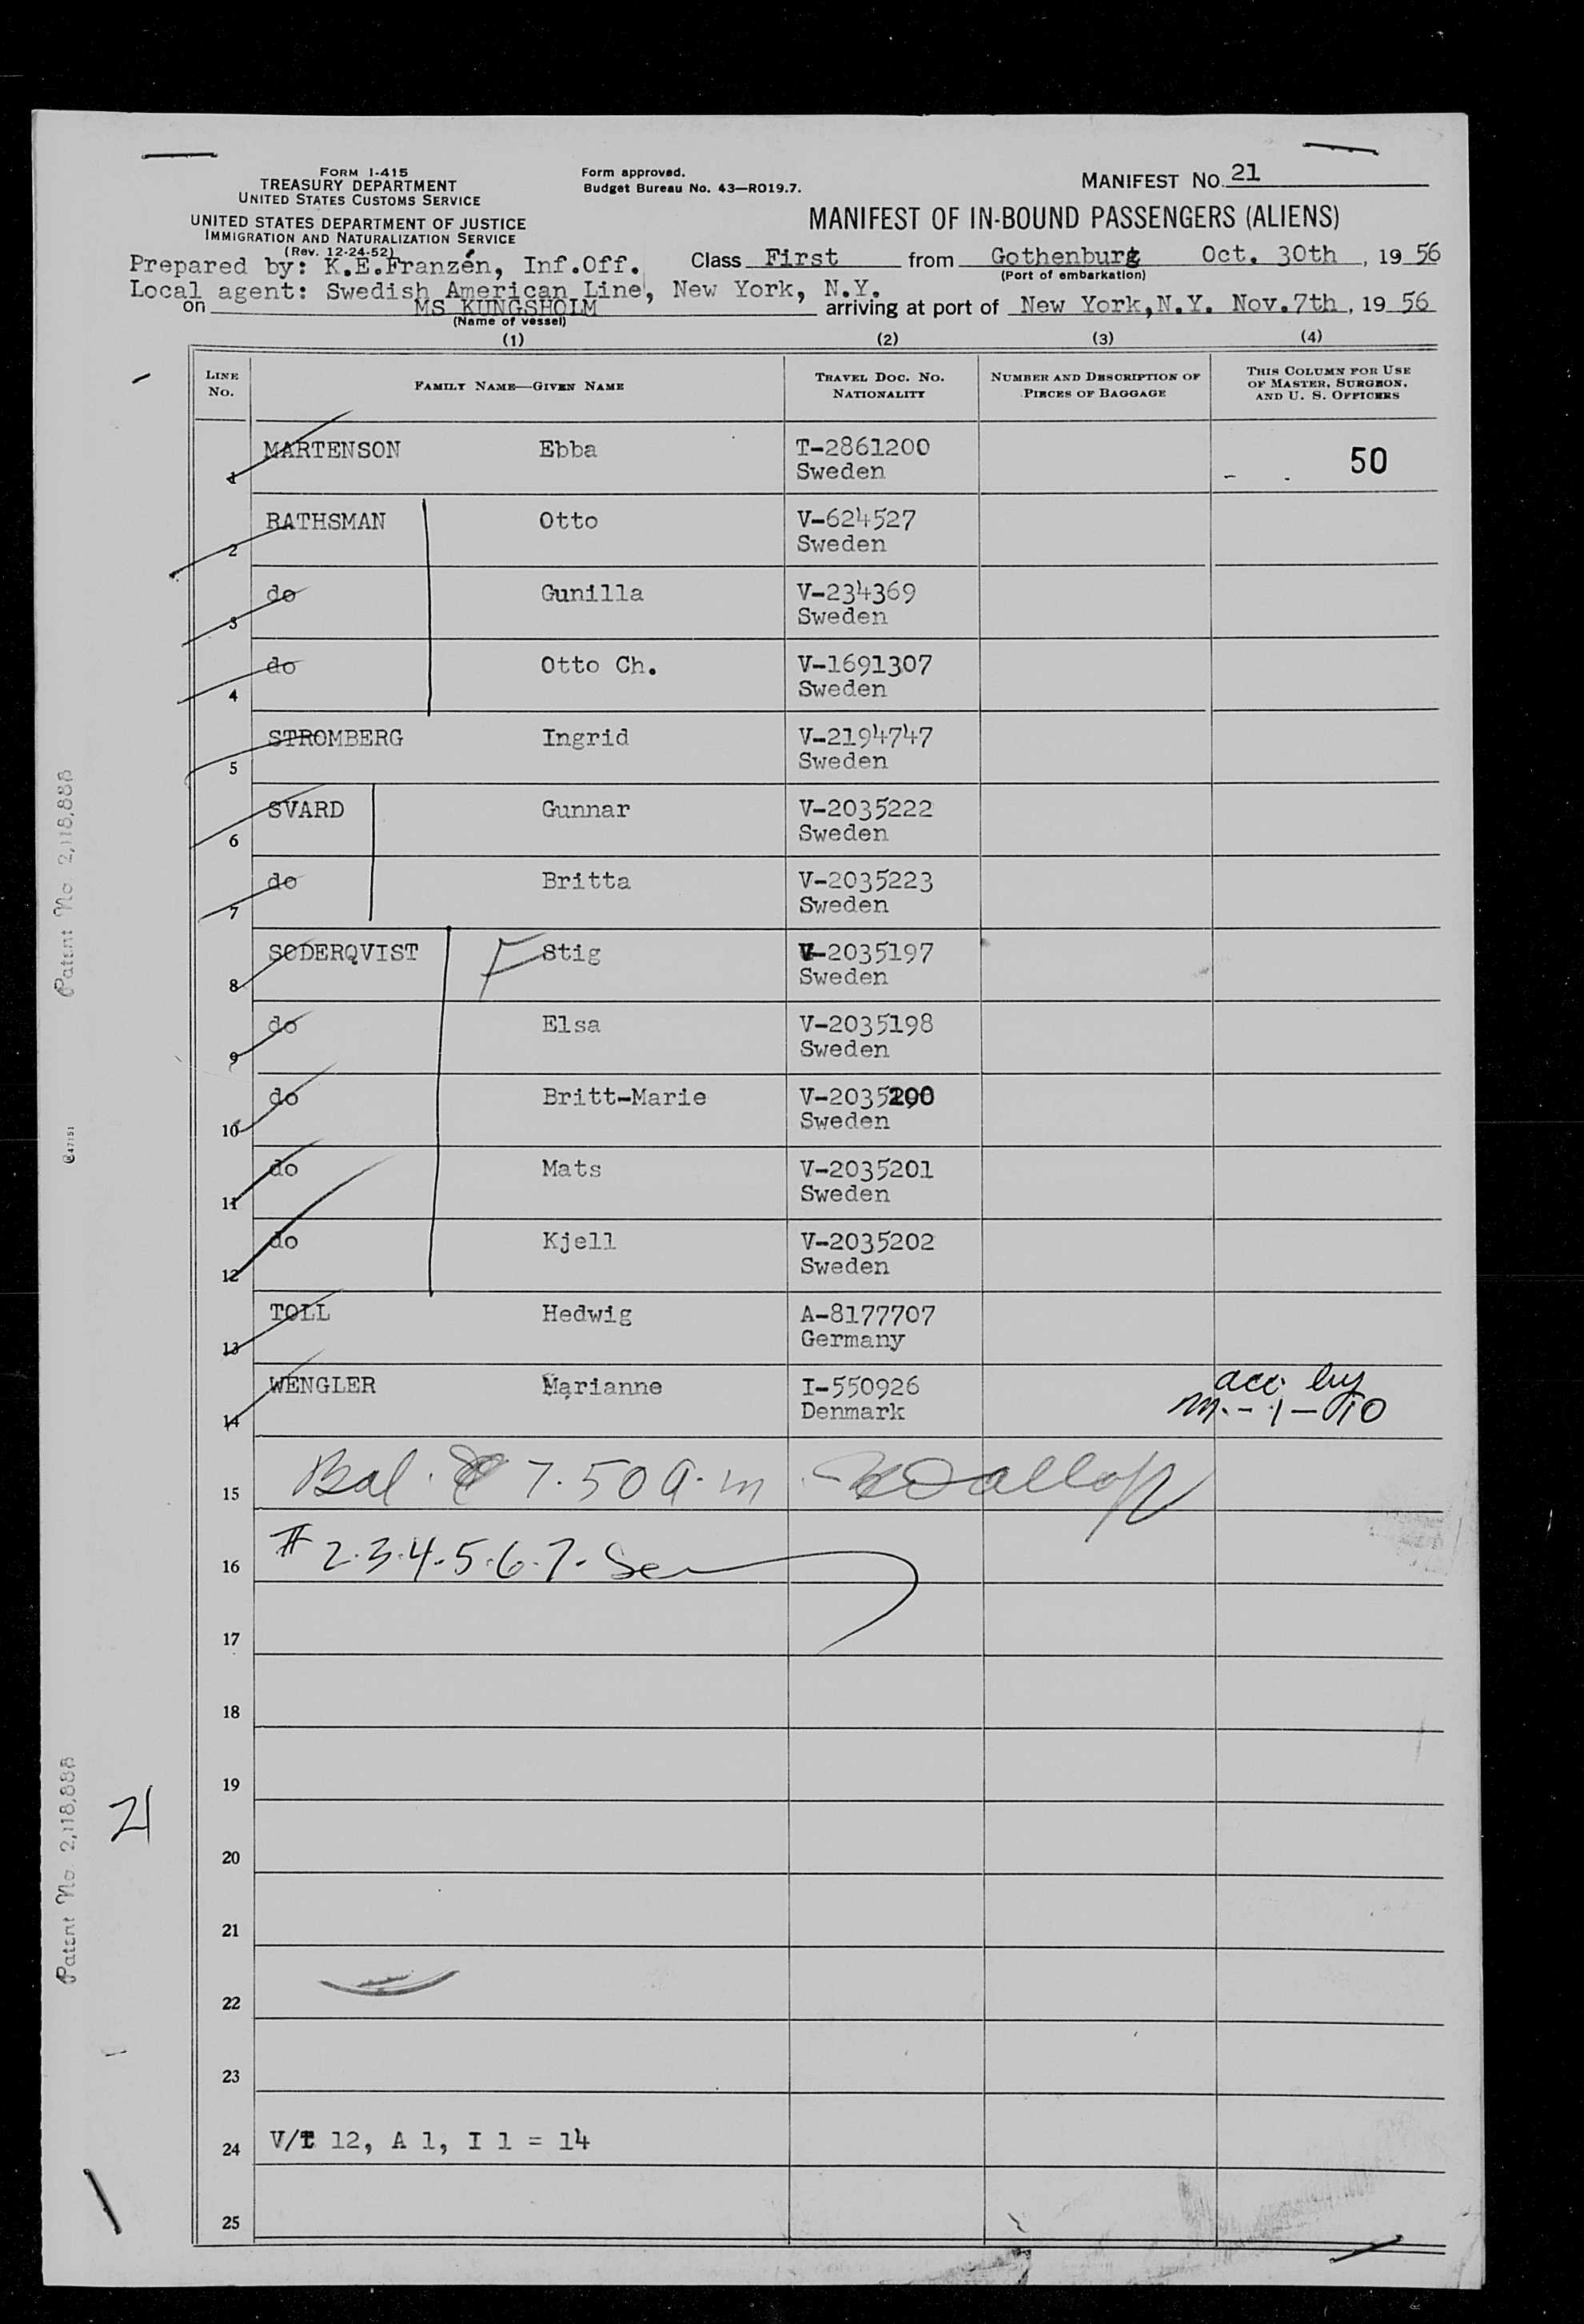 FORM I-415
TREASURY DEPARTMENT
UNITED STATES CUSTOMS SERVICE
UNITED STATES DEPARTMENT OF JUSTICE
IMMIGRATION AND NATURALIZATION SERVICE
(Rev. 12-24-52)
Form approved.
Budget Bureau No. 43—RO19.7.
MANIFEST NO. 21
MANIFEST OF IN-BOUND PASSENGERS (ALIENS)
Prepared by: K.E.Franzén, Inf.Off. Class First from Gothenburg Oct. 30th, 19 56
(Port of embarkation)
Local agent: Swedish American Line, New York, N.Y.
on MS KUNGSHOLM arriving at port of New York,N.Y. Nov.7th, 19 56
(Name of vessel)
(1) (2) (3) (4)
LINE No. FAMILY NAME—GIVEN NAME TRAVEL DOC. NO. NATIONALITY NUMBER AND DESCRIPTION OF PIECES OF BAGGAGE THIS COLUMN FOR USE OF MASTER, SURGEON, AND U. S. OFFICERS
1 MARTENSON Ebba T-2861200 50
Sweden
2 RATHSMAN Otto V-624527
Sweden
3 do Gunilla V-234369
Sweden
4 do Otto Ch. V-1691307
Sweden
5 STROMBERG Ingrid V-2194747
Sweden
6 SVARD Gunnar V-2035222
Sweden
7 do Britta V-2035223
Sweden
8 SODERQVIST Stig V-2035197
Sweden
9 do Elsa V-2035198
Sweden
10 do Britt-Marie V-2035200
Sweden
11 do Mats V-2035201
Sweden
12 do Kjell V-2035202
Sweden
13 TOLL Hedwig A-8177707
Germany
14 WENGLER Marianne I-550926 acc. by
Denmark M.-1-010
15 Bal. 7.50 a.m
16 # 2.3.4.5.6.7.
17
18
19
20
21
22
23
24 V/T 12, A 1, I 1 = 14
25
Patent No. 2,118,888
Patent No. 2,118,888
21